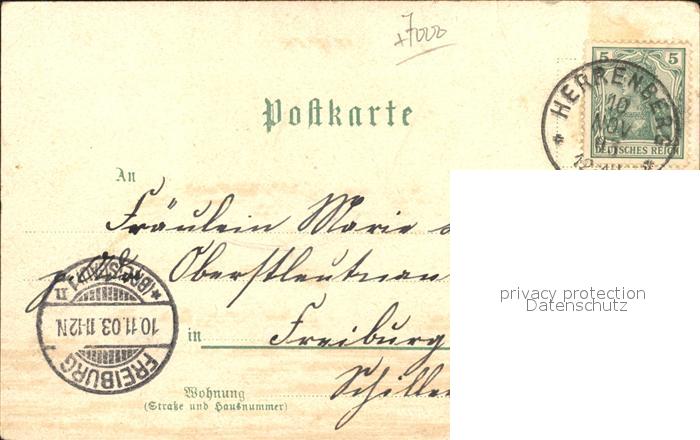 +7000
5 5
HERRENBERG
10
NOV
DEUTSCHES REICH
Postkarte
An
Fräulein Marie
Oberstleutnan
in Freiburg
Schille
Wohnung
(Straße und Hausnummer)
FREIBURG
10.11.03.11-12N
(BREISGAU)
privacy protection
Datenschutz